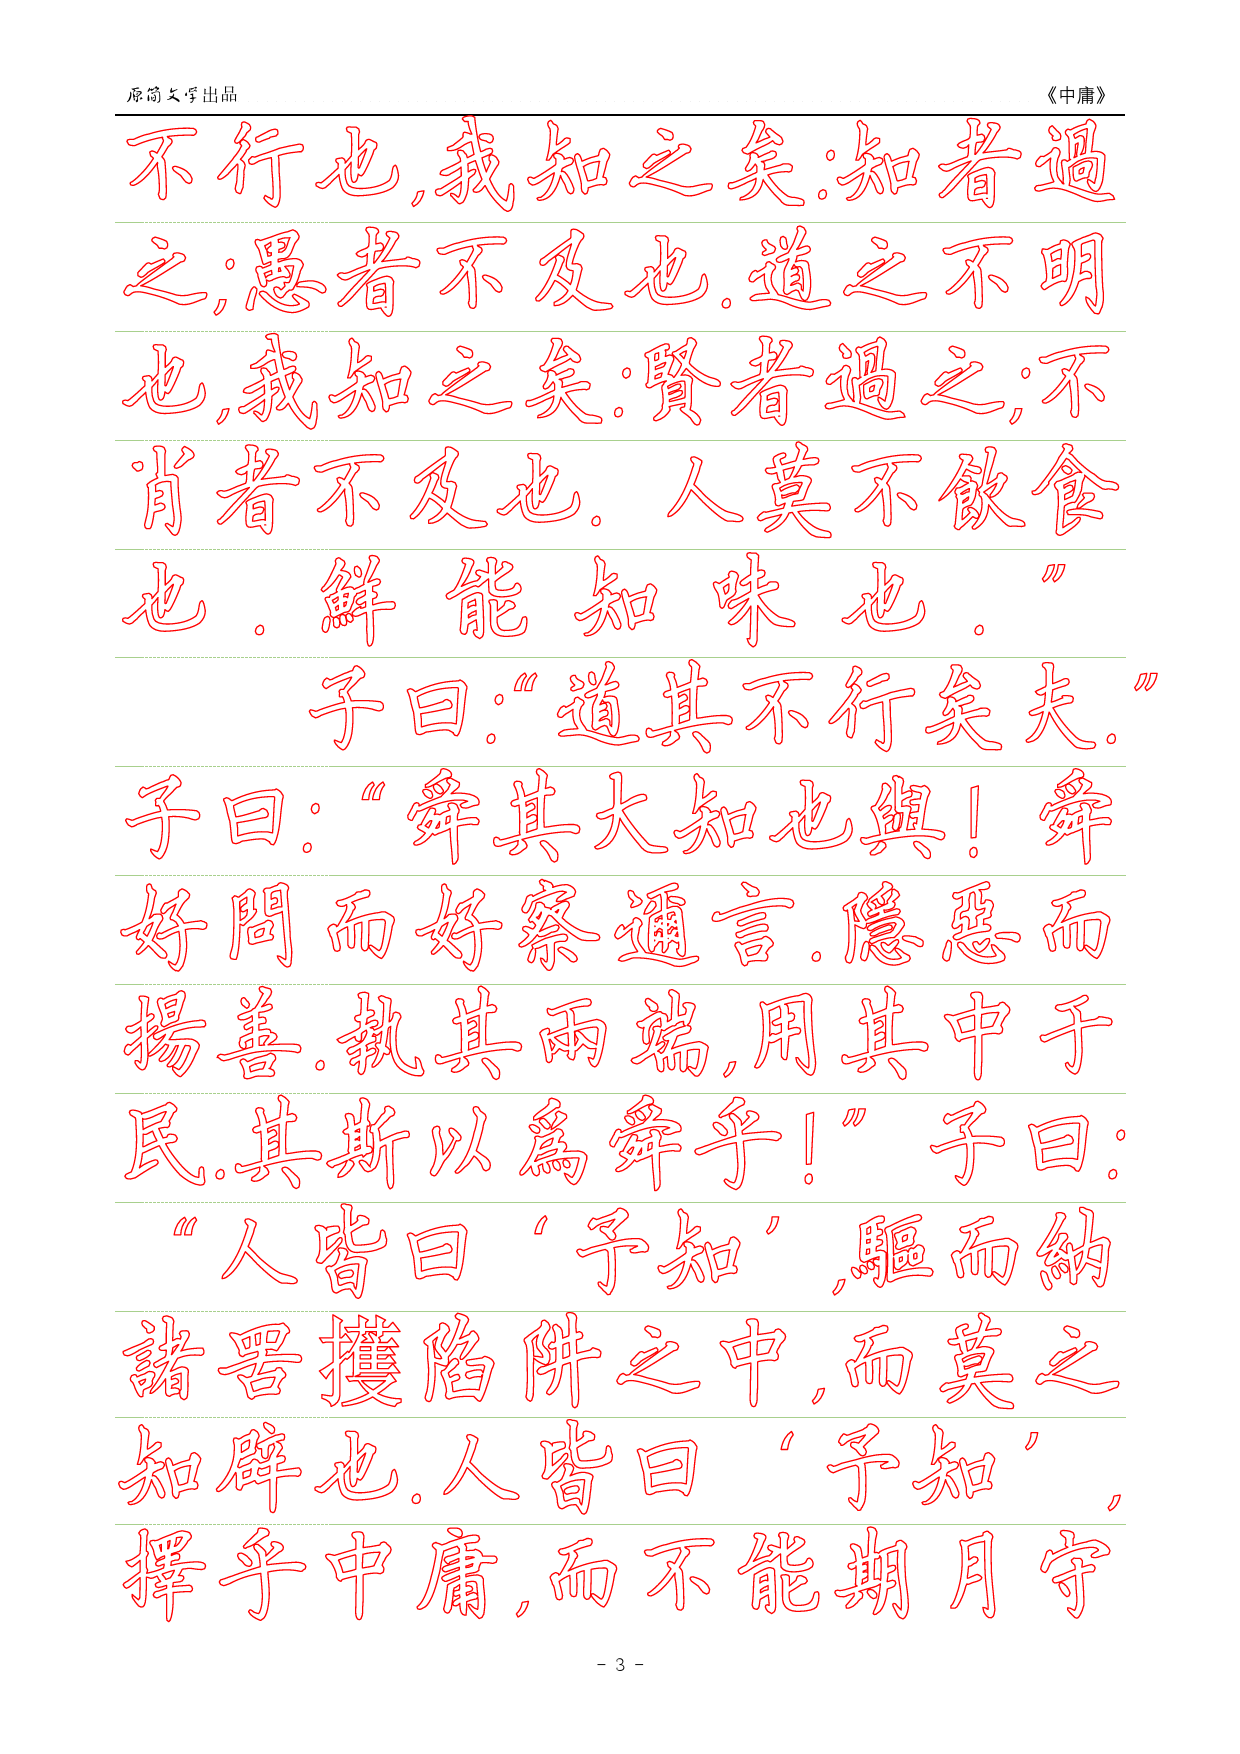 原简文学出品 《中庸》
不行也,我知之矣:知者過
之;愚者不及也.道之不明
也,我知之矣:賢者過之;不
肖者不及也. 人莫不飲食
也.鮮能知味也.”
子曰:“道其不行矣夫.”
子曰:“舜其大知也與! 舜
好問而好察邇言.隱惡而
揚善.執其兩端,用其中于
民.其斯以爲舜乎!” 子曰:
“人皆曰‘予知’,驅而納
諸罟擭陷阱之中,而莫之
知辟也.人皆曰‘予知’,
擇乎中庸,而不能期月守
- 3 -